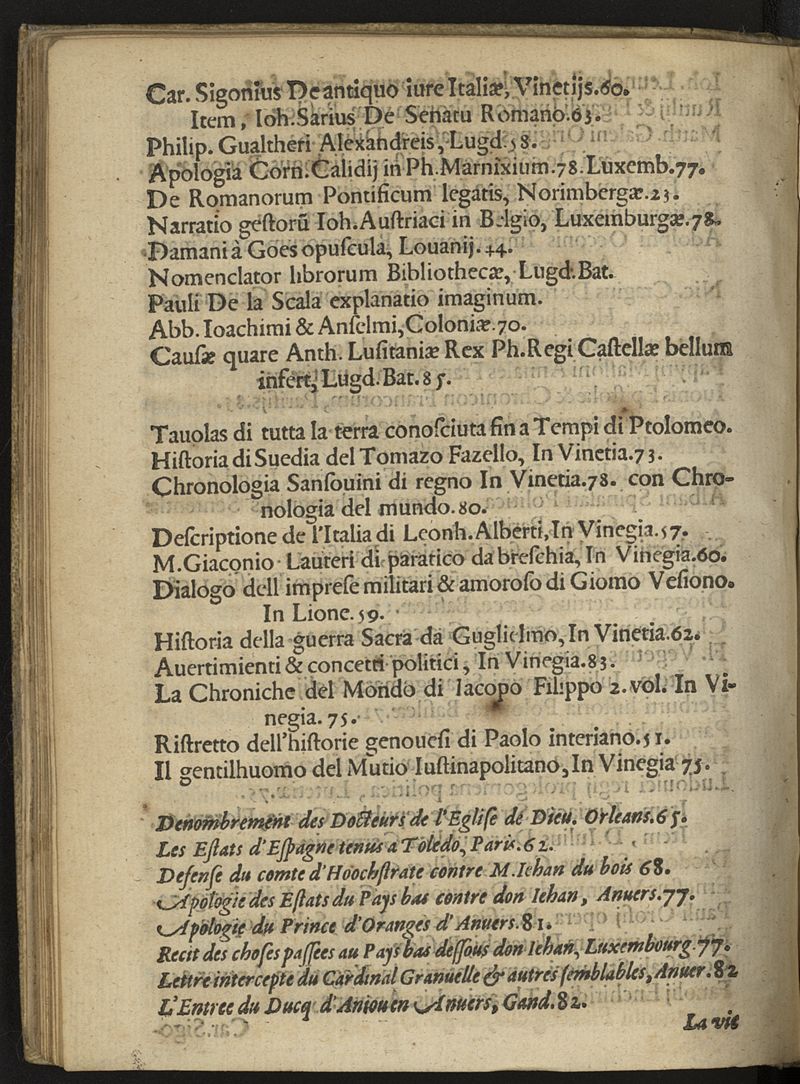 Car. Sigonius De antiquo iure Italiæ, Vinetijs.60.
Item, Ioh. Sarius De Senatu Romano.63.
Philip. Gualtheri Alexandreis, Lugd.58.
Apologia Corn. Calidij in Ph. Marnixium.78. Luxemb.77.
De Romanorum Pontificum legatis, Norimbergæ.23.
Narratio geſtorũ Ioh. Auſtriaci in Belgio, Luxemburgæ.78.
Damani à Goes opuſcula, Louanij.44.
Nomenclator librorum Bibliothecæ, Lugd. Bat.
Pauli De la Scala explanatio imaginum.
Abb. Ioachimi & Anſelmi, Coloniæ.70.
Cauſæ quare Anth. Luſitaniæ Rex Ph. Regi Caſtellæ bellum
infert, Lugd. Bat. 85.
Tauolas di tutta la terra conoſciuta fin a Tempi di Ptolomeo.
Hiſtoria di Suedia del Tomazo Fazello, In Vinetia.73.
Chronologia Sanſouini di regno In Vinetia.78. con Chro-
nologia del mundo.80.
Deſcriptione de l'Italia di Leonh. Alberti, In Vinegia.57.
M. Giaconio Lauteri di paratico da breſchia, In Vinegia.60.
Dialogo dell impreſe militari & amoroſo di Giomo Veſiono.
In Lione.59.
Hiſtoria della guerra Sacra da Guglielmo, In Vinetia.62.
Auertimienti & concetti politici, In Vinegia.83.
La Chroniche del Mondo di Iacopo Filippo 2. vol. In Vi-
negia. 75.
Riſtretto dell'hiſtorie genoueſi di Paolo interiano.51.
Il gentilhuomo del Mutio Iuſtinapolitano, In Vinegia 75.
Denombrement des Docteurs de l'Egliſe de Dieu, Orleans.65.
Les Eſtats d'Eſpagne tenus a Toledo, Paris.62.
Defenſe du comte d'Hoochſtrate contre M. Iehan du bois 68.
Apologie des Eſtats du Pays bas contre don Iehan, Anuers.77.
Apologie du Prince d'Oranges d'Anuers.81.
Recit des choſes paſſees au Pays bas deſſous don Iehan, Luxembourg.77.
Lettre intercepte du Cardinal Granuelle & autres ſemblables, Anuer.82
L'Entree du Ducq d'Aniou en Anuers, Gand.82.
La vie